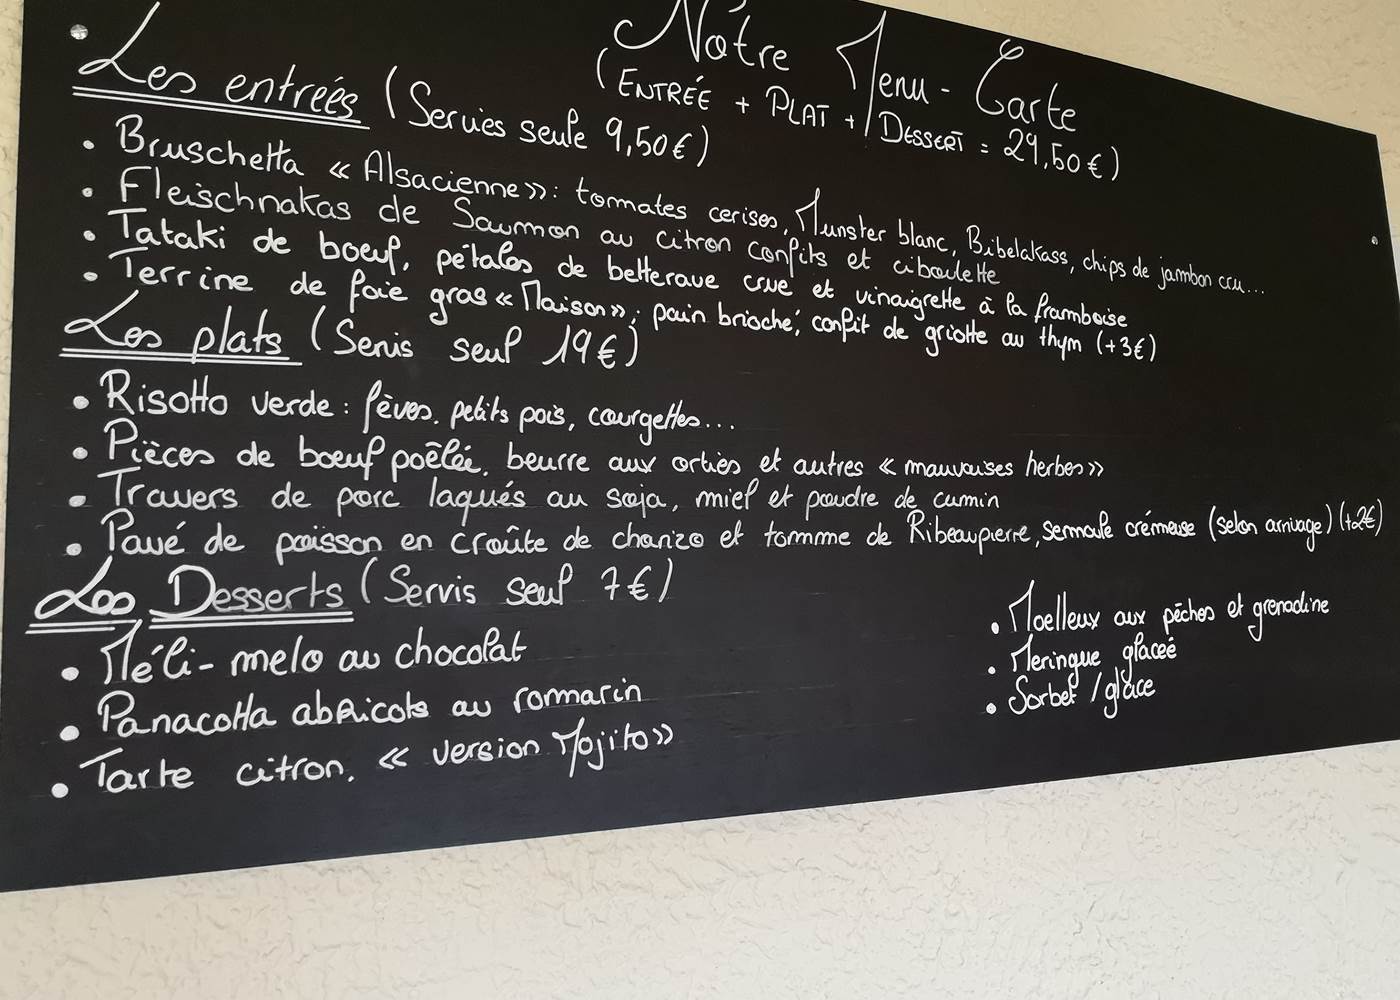 Nôtre Menu - Carte
(ENTRÉE + PLAT + DESSERT = 29,50€)
Les entreés (Servies seule 9,50€)
• Bruschetta « Alsacienne » : tomates cerises, Munster blanc, Bibelakass, chips de jambon cru...
• Fleischnakas de Saumon au citron confits et ciboulette
• Tataki de boeuf, pétales de betterave crue et vinaigrette à la framboise
• Terrine de foie gras « Maison », pain brioché, confit de griotte au thym (+3€)
Les plats (Servis seul 19€)
• Risotto verde : fèves, petits pois, courgettes...
• Pièces de boeuf poêlée, beurre aux orties et autres « mauvaises herbes »
• Travers de porc laqués au soja, miel et poudre de cumin
• Pavé de poisson en croûte de chorizo et tomme de Ribeaupierre, semoule crémeuse (selon arrivage) (+2€)
Les Desserts (Servis seul 7€)
• Méli-melo au chocolat
• Panacotta abricots au romarin
• Tarte citron, « version Mojito »
• Moelleux aux pêches et grenadine
• Meringue glaceé
• Sorbet / glace